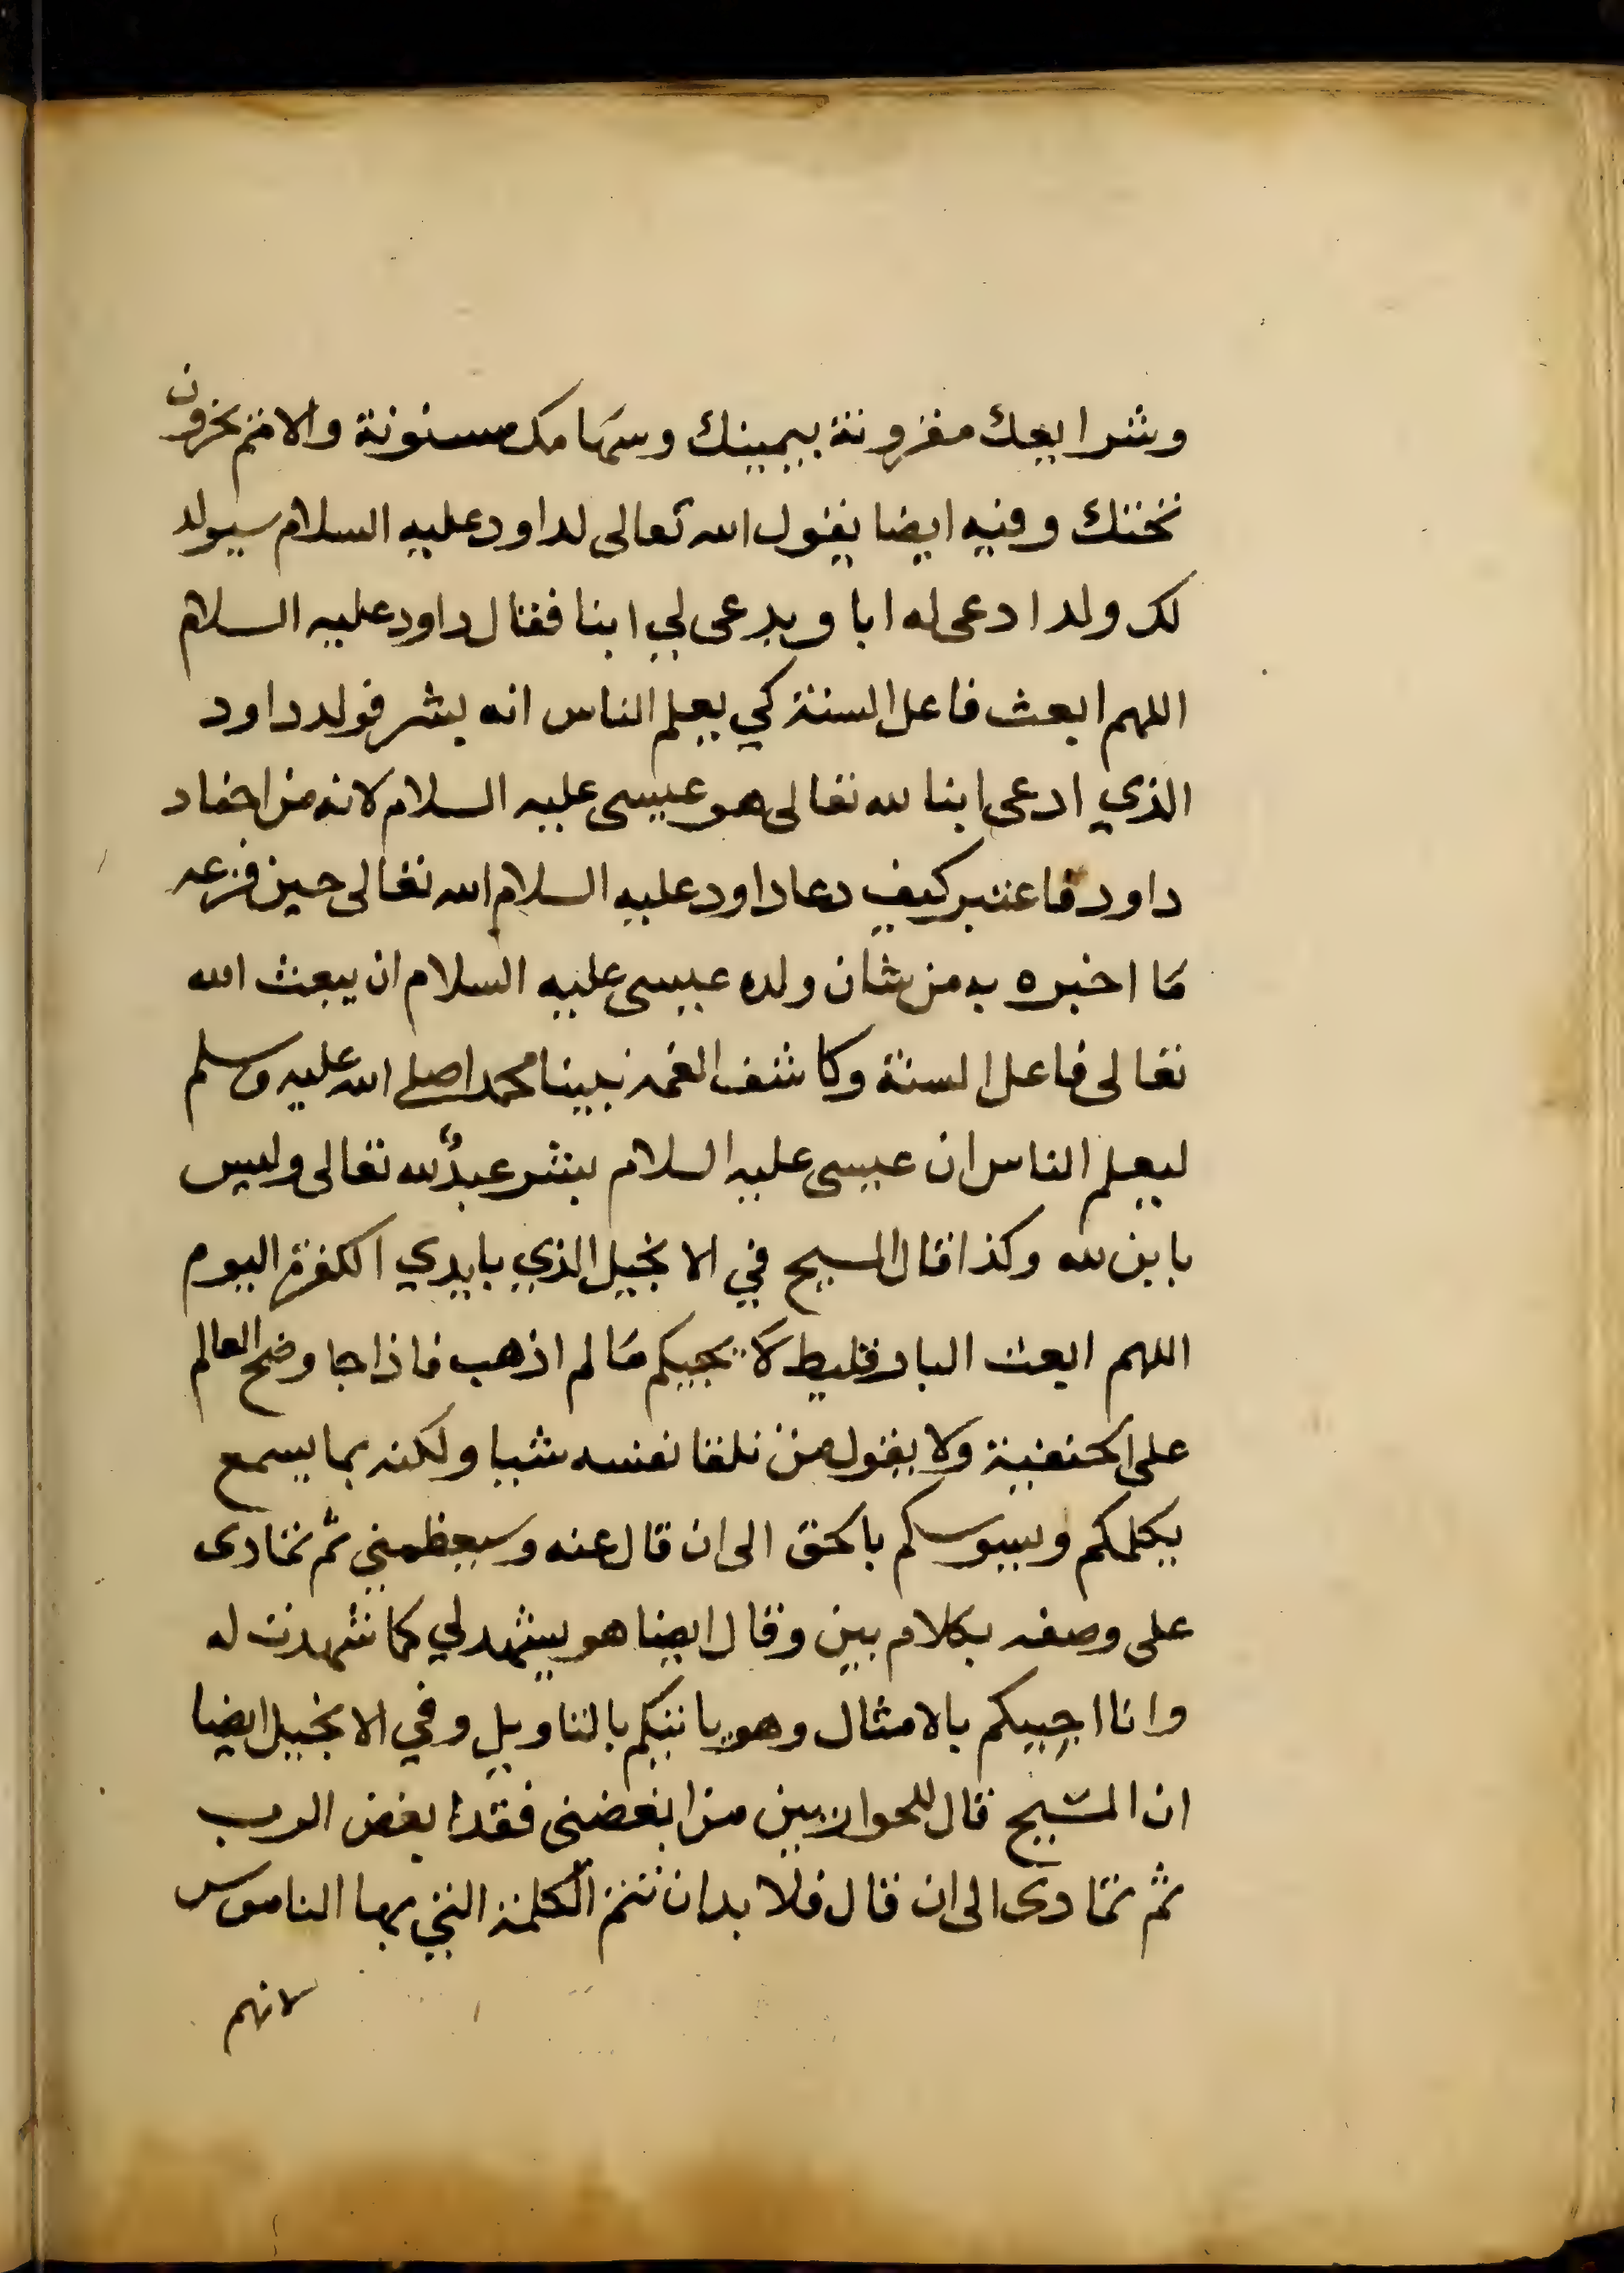 وشرايعك مقرونة بيمينك وسهامك مسنونة والامم يخرون
تحتك وفيه ايضا يقول الله تعالى لداود عليه السلام سيولد
لك ولد ادعى له ابا ويدعى لي ابنا فقال داود عليه السلام
اللهم ابعث فاعل السنة كي يعلم الناس انه بشر فولد داود
الذي ادعى ابنا لله تعالى هو عيسى عليه السلام لانه من احفاد
داود فاعتبر كيف دعا داود عليه السلام الله تعالى حين فزعه
ما اخبره به من شان ولده عيسى عليه السلام ان يبعث الله
تعالى فاعل السنة وكاشف الغمة نبينا محمدا صلى الله عليه وسلم
ليعلم الناس ان عيسى عليه السلام بشر عبدٌ لله تعالى وليس
بابن لله وكذا قال المسيح في الانجيل الذي بايدي الكفرة اليوم
اللهم ابعث البارقليط لا يجيكم ما لم اذهب فاذا جا وضح العالم
على الحنفية ولا يقول من تلقا نفسه شيا ولكنه بما يسمع
يكلمكم ويسوسكم بالحق الى ان قال عنه وسيعظمني ثم تمادى
على وصفه بكلام بين وقال ايضا هو يشهد لي كما شهدت له
وانا اجيبكم بالامثال وهو ياتيكم بالتاويل وفي الانجيل ايضا
ان المسيح قال للحواريين من ابغضني فقد ابغض الرب
ثم تمادى الى ان قال فلا بد ان تتم الكلمة التي بها الناموس
لانهم